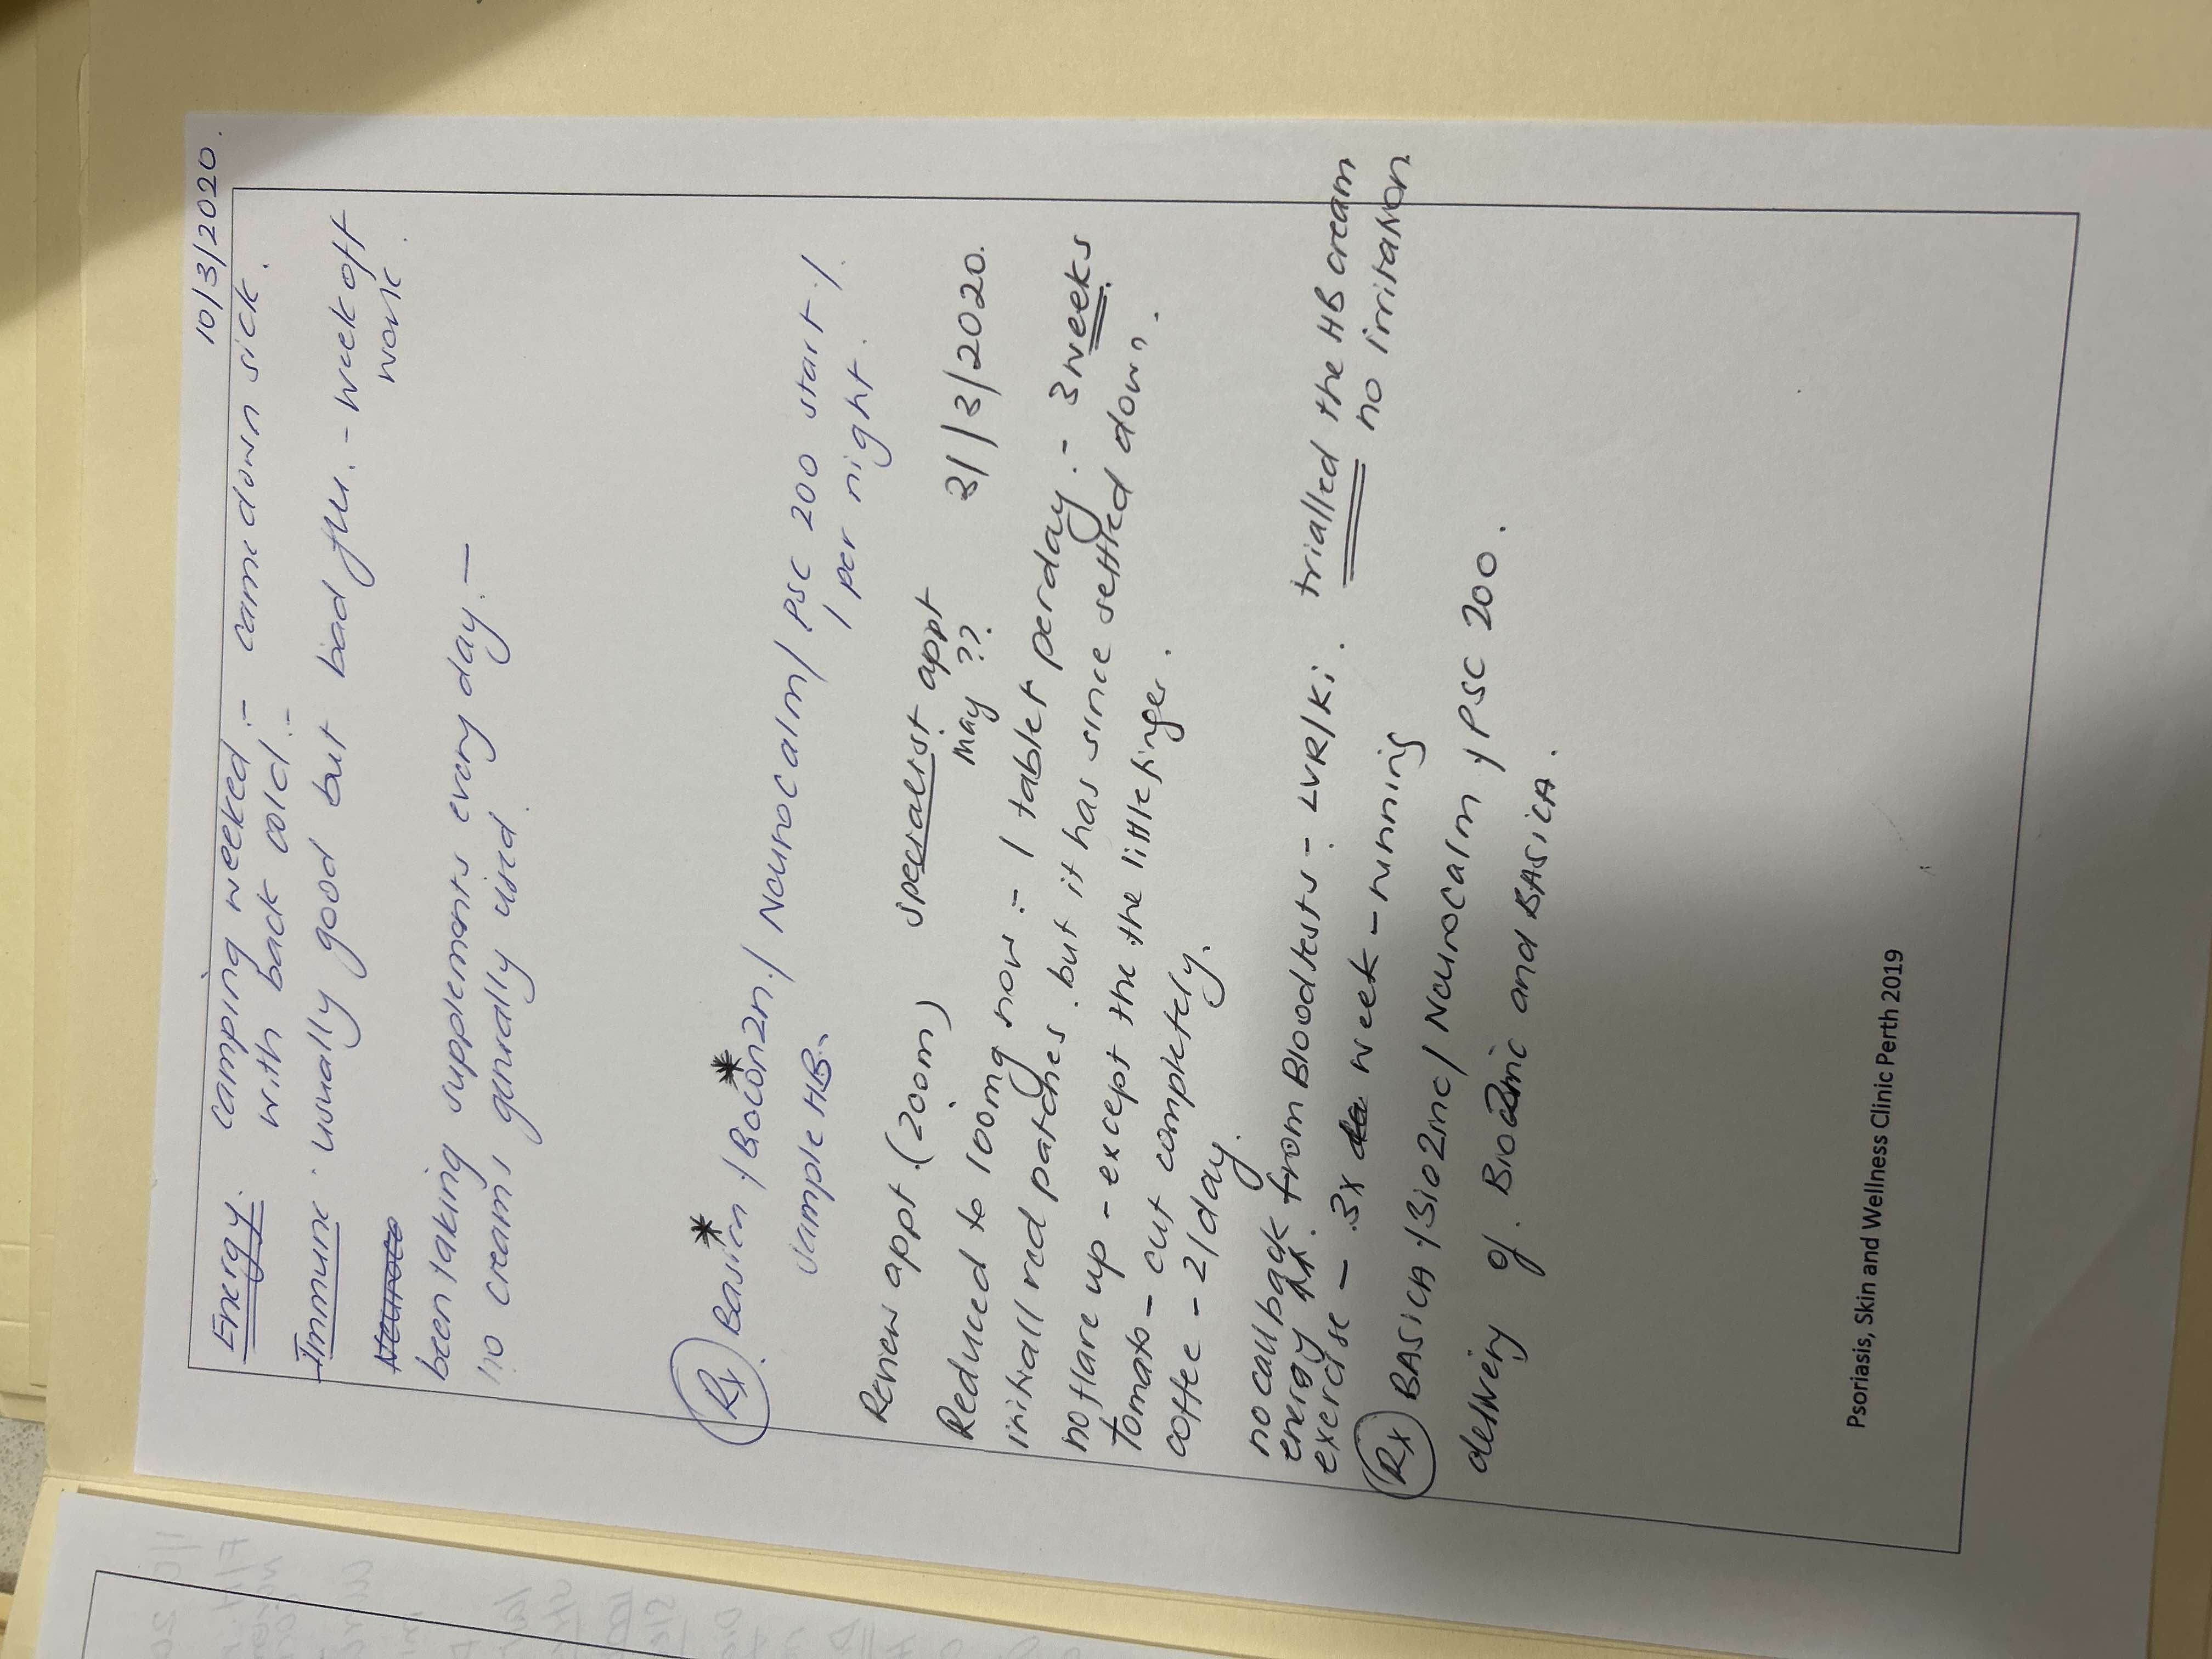 10/3/2020.
Energy. camping weeked :- came down sick.
with back cold :-
Immune . usually good but bad flu. - week off
work.
been taking supplements every day. —
no creams generally used.
Rx Basica* / Biocon2n* / Neurocalm / PSC 200 start 1/.
sample HB. 1 per night.
Review appt. (200m) specialist appt 31/3/2020.
may ??.
Reduced to 100mg now :- 1 tablet perday. - 3 weeks
initiall red patches . but it has since settled down.
no flare up - except the the little finger.
tomato - cut completely.
coffee - 2/day.
no call back from Bloodtests - LVR/Ki . trialled the HB cream
energy ↑↑. no irritation
exercise - 3x week - running
Rx BASICA / Bio2inc / Neurocalm / PSC 200.
delivery of. Bio2inc and BASICA.
Psoriasis, Skin and Wellness Clinic Perth 2019